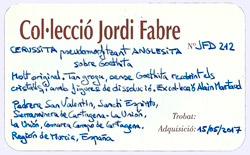 Col·lecció Jordi Fabre
CERUSSITA pseudomorfitzant ANGLESITA Nº JFD 212
sobre Goethita
Molt original. Tan groga, sense Goethita recobrint els
cristalls, amb signes de dissolució. Ex col·lecció Alain Martaud
Pedrera San Valentín, Sancti Espíritu,
Serra minera de Cartagena-La Unión,
La Unión, Comarca Campo de Cartagena,
Región de Murcia, España
Trobat:
Adquisició: 15/05/2017